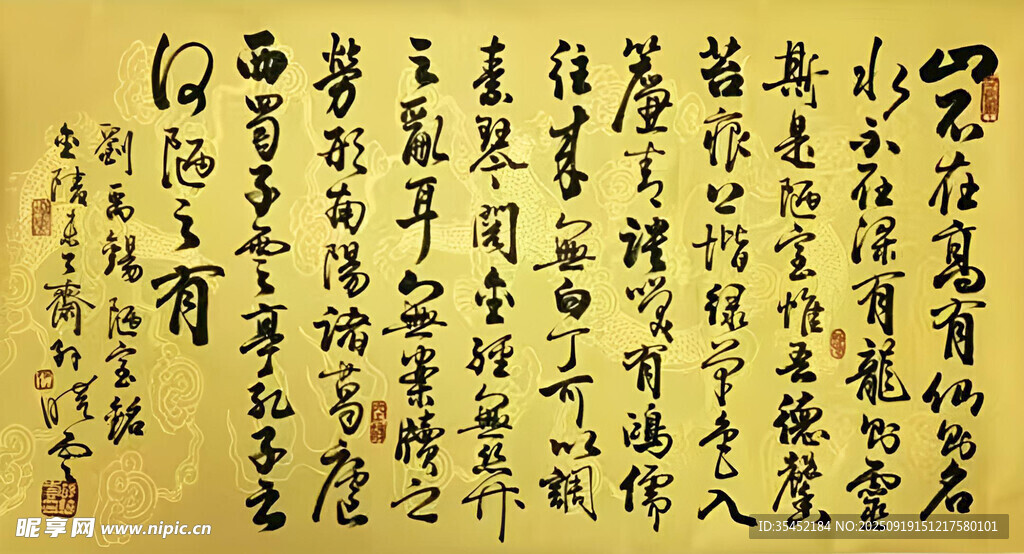 山不在高有仙則名
水不在深有龍則靈
斯是陋室惟吾德馨
苔痕上堦綠草色入
簾青談笑有鴻儒
往來無白丁可以調
素琴閱金經無絲竹
之亂耳無案牘之
勞形南陽諸葛廬
西蜀子雲亭孔子云
何陋之有
劉禹錫陋室銘
金陵齋
昵享网 www.nipic.cn
ID:35452184 NO:20250919151217580101